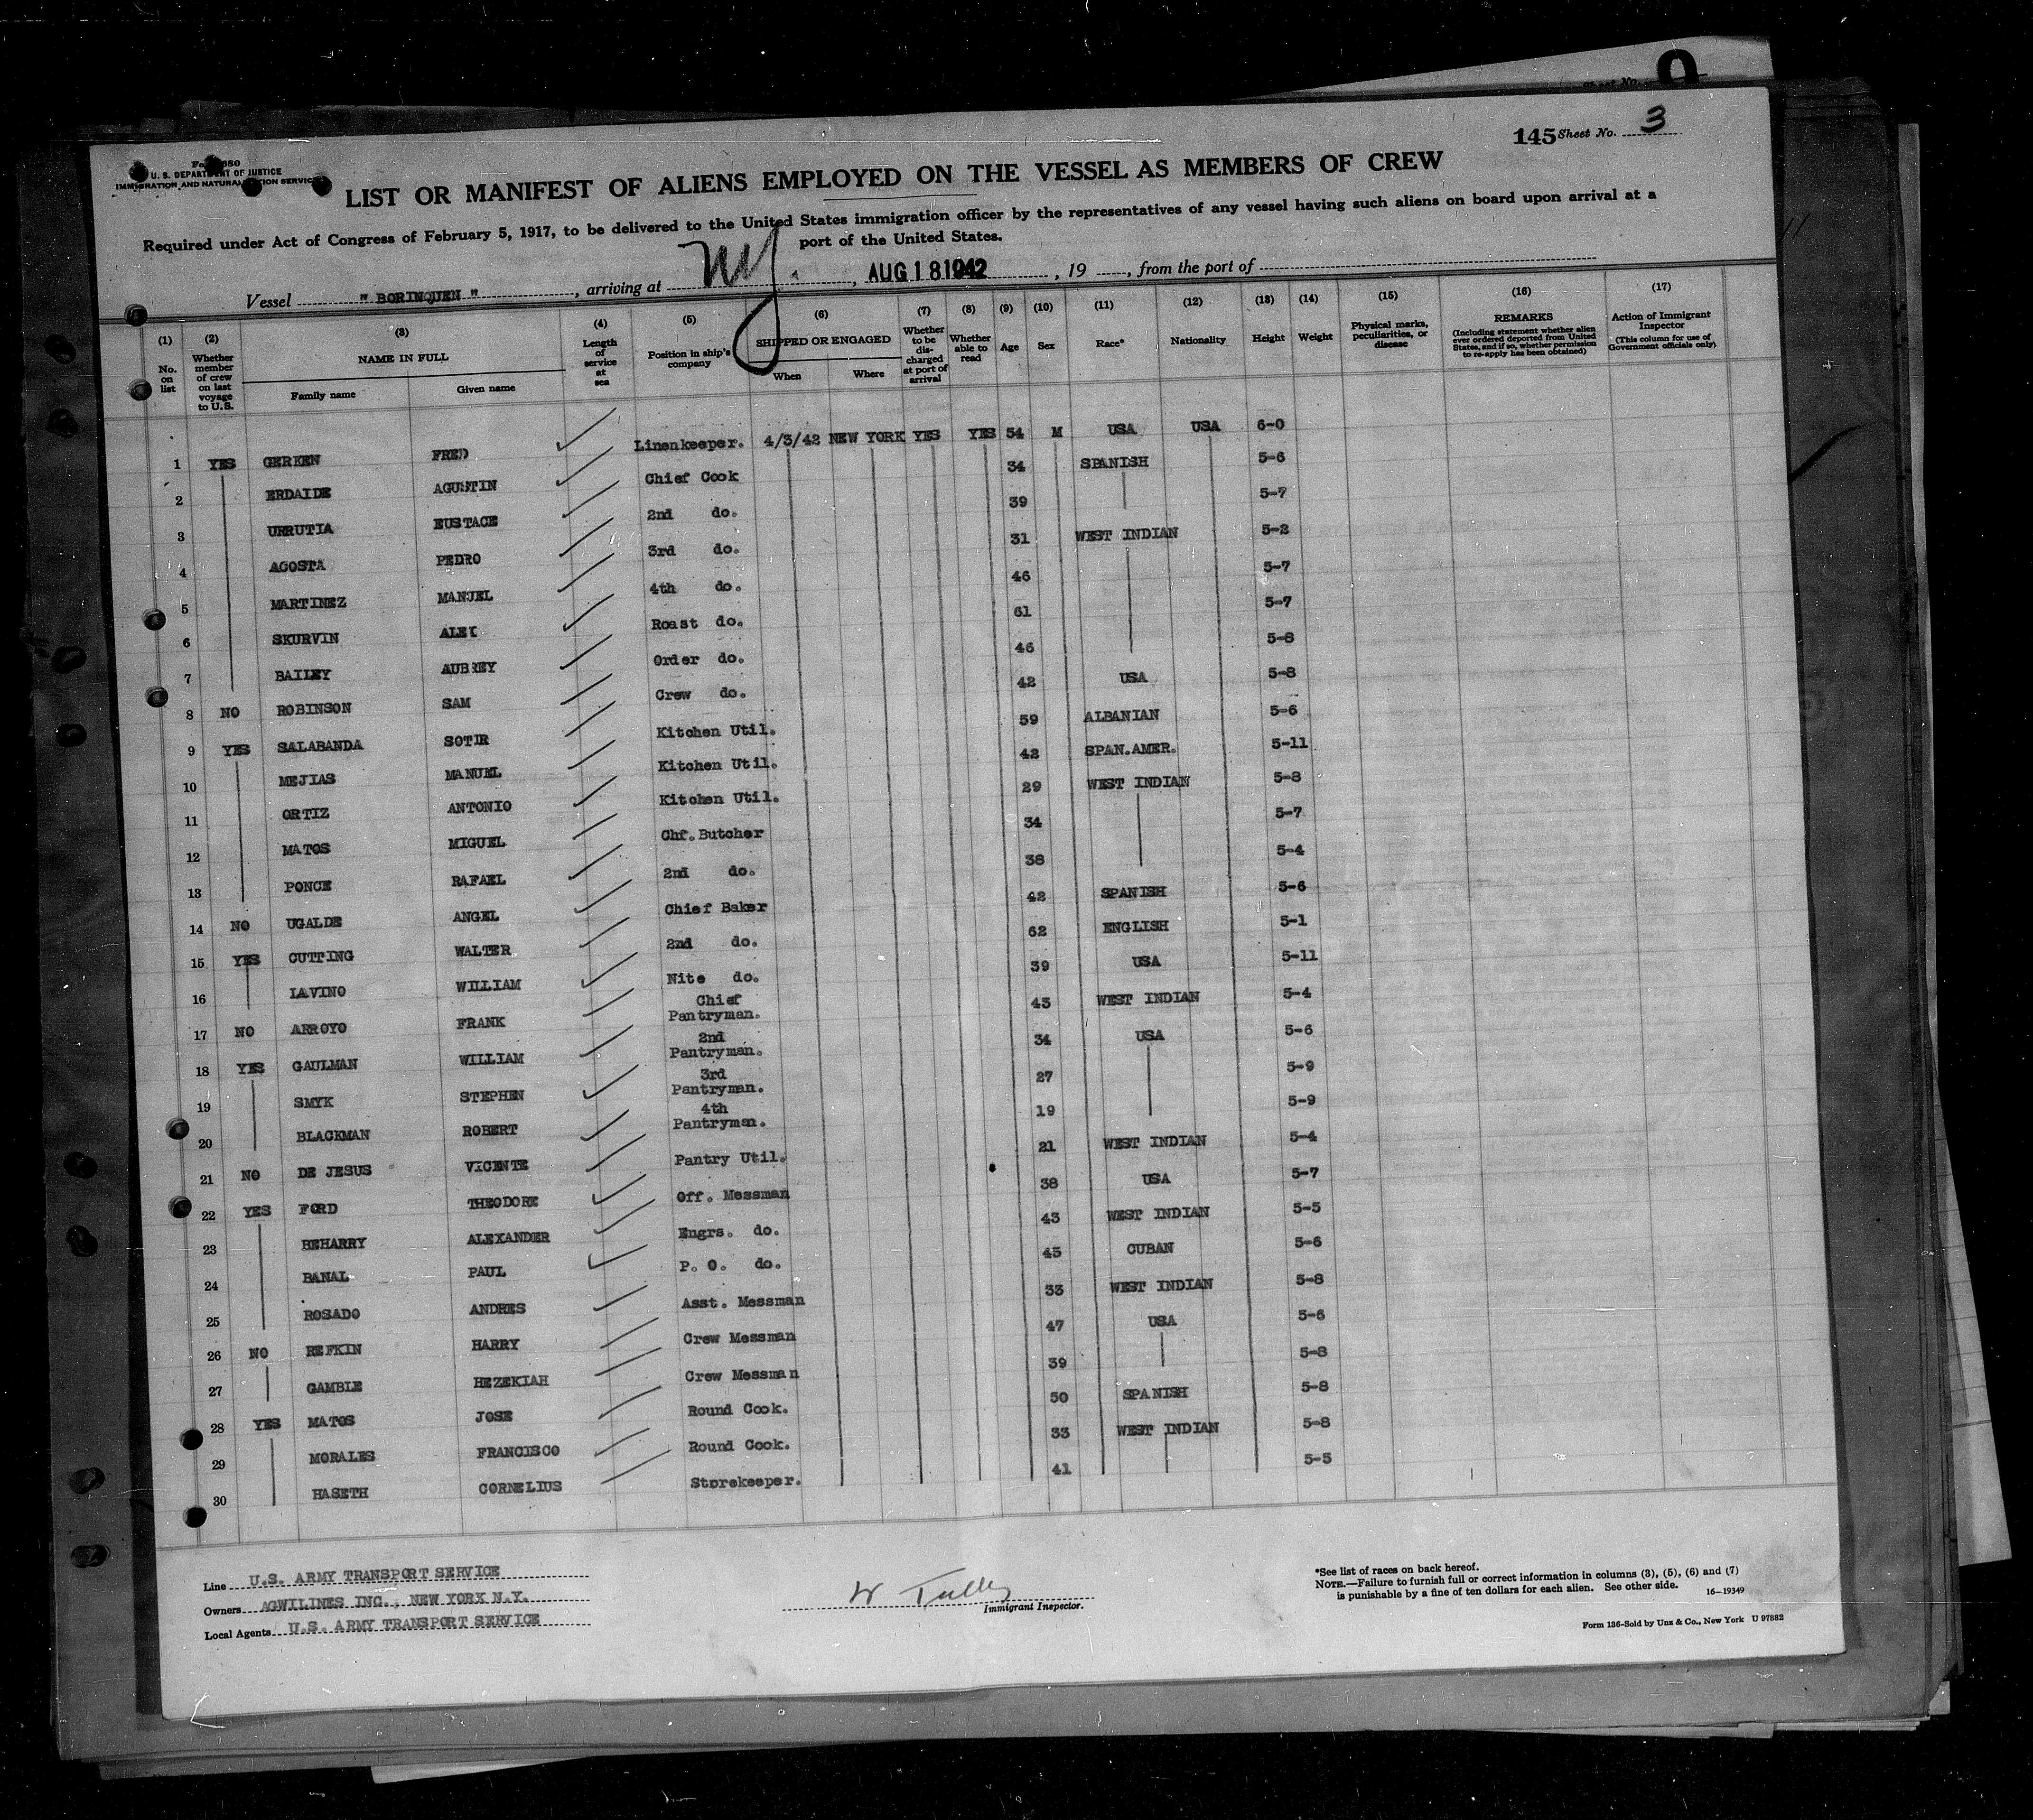 Sheet No.
145 Sheet No. 3
U. S. DEPARTMENT OF JUSTICE
IMMIGRATION AND NATURALIZATION SERVICE
LIST OR MANIFEST OF ALIENS EMPLOYED ON THE VESSEL AS MEMBERS OF CREW
Required under Act of Congress of February 5, 1917, to be delivered to the United States immigration officer by the representatives of any vessel having such aliens on board upon arrival at a
port of the United States.
Vessel " BORINQUEN " , arriving at NY. , AUG 18 1942 , 19 , from the port of
(1) (2) (3) (4) (5) (6) (7) (8) (9) (10) (11) (12) (13) (14) (15) (16) (17)
No. on list
Whether member of crew on last voyage to U.S.
NAME IN FULL
Family name Given name
Length of service at sea
Position in ship's company
SHIPPED OR ENGAGED
When Where
Whether to be discharged at port of arrival
Whether able to read
Age Sex Race* Nationality Height Weight
Physical marks, peculiarities, or disease
REMARKS
(Including statement whether alien ever ordered deported from United States, and if so, whether permission to re-apply has been obtained)
Action of Immigrant Inspector
(This column for use of Government officials only)
1 YES GERKEN FRED Linenkeeper. 4/3/42 NEW YORK YES YES 54 M USA USA 6-0
2 ERDAIDE AGUSTIN Chief Cook 34 SPANISH 5-6
3 URRUTIA EUSTACE 2nd do. 39 5-7
4 AGOSTA PEDRO 3rd do. 31 WEST INDIAN 5-2
5 MARTINEZ MANUEL 4th do. 46 5-7
6 SKURVIN ALEX Roast do. 61 5-7
7 BAILEY AUBREY Order do. 46 5-8
8 NO ROBINSON SAM Crew do. 42 USA 5-8
9 YES SALABANDA SOTIR Kitchen Util. 59 ALBANIAN 5-6
10 MEJIAS MANUEL Kitchen Util. 42 SPAN.AMER. 5-11
11 ORTIZ ANTONIO Kitchen Util. 29 WEST INDIAN 5-8
12 MATOS MIGUEL Chf. Butcher 34 5-7
13 PONCE RAFAEL 2nd do. 38 5-4
14 NO UGALDE ANGEL Chief Baker 42 SPANISH 5-6
15 YES CUTTING WALTER 2nd do. 62 ENGLISH 5-1
16 LAVINO WILLIAM Nite do. 39 USA 5-11
17 NO ARROYO FRANK Chief Pantryman. 43 WEST INDIAN 5-4
18 YES GAULMAN WILLIAM 2nd Pantryman. 34 USA 5-6
19 SMYK STEPHEN 3rd Pantryman. 27 5-9
20 BLACKMAN ROBERT 4th Pantryman. 19 5-9
21 NO DE JESUS VICENTE Pantry Util. 21 WEST INDIAN 5-4
22 YES FORD THEODORE Off. Messman 38 USA 5-7
23 BEHARRY ALEXANDER Engrs. do. 43 WEST INDIAN 5-5
24 BANAL PAUL P. O. do. 45 CUBAN 5-6
25 ROSADO ANDRES Asst. Messman 33 WEST INDIAN 5-8
26 NO REFKIN HARRY Crew Messman 47 USA 5-6
27 GAMBLE HEZEKIAH Crew Messman 39 5-8
28 YES MATOS JOSE Round Cook. 50 SPANISH 5-8
29 MORALES FRANCISCO Round Cook. 33 WEST INDIAN 5-8
30 HASETH CORNELIUS Storekeeper. 41 5-5
Line U.S. ARMY TRANSPORT SERVICE
Owners AGWILINES INC., NEW YORK N.Y.
Local Agents U.S. ARMY TRANSPORT SERVICE
W Tully
Immigrant Inspector.
*See list of races on back hereof.
NOTE.—Failure to furnish full or correct information in columns (3), (5), (6) and (7)
is punishable by a fine of ten dollars for each alien. See other side.
16—19349
Form 136-Sold by Unz & Co., New York U 97882